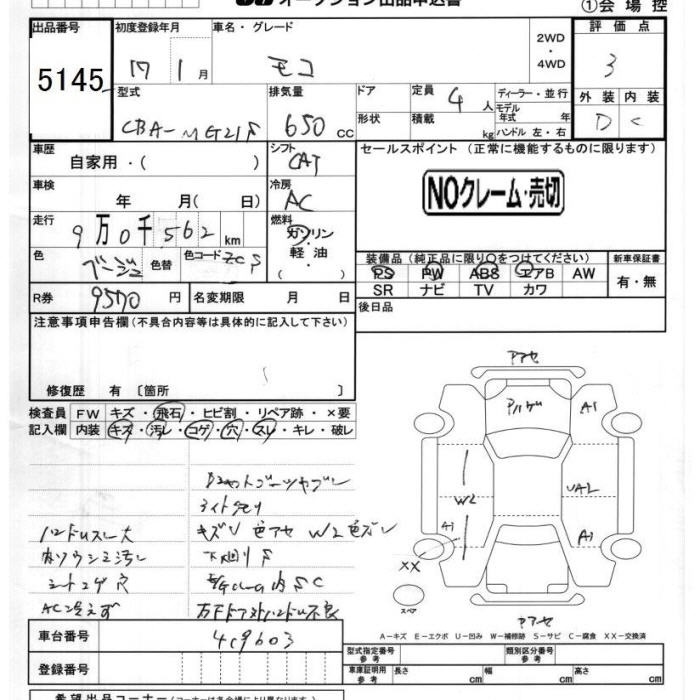 オークション出品申込書
①会場控
出品番号 初度登録年月 車名・グレード 評価点
5145 17 1月 モコ 2WD・4WD 3
型式 排気量 ドア 定員 4人 ディーラー・並行 外装 内装
CBA-MG21S 650cc 形状 積載 kg モデル年式 年 ハンドル 左・右 D C
車歴 自家用・( ) シフト CAT セールスポイント(正常に機能するものに限ります)
車検 年 月( 日) 冷房 AC NOクレーム・売切
走行 9万0千562km 燃料 ガソリン 軽油 ( )
色 ベージュ 色替 色コード ZCS
装備品(純正品に限り○をつけてください) 新車保証書
PS PW ABS エアB AW 有・無
SR ナビ TV カワ
R券 9570円 名変期限 月 日 後日品
注意事項申告欄(不具合内容等は具体的に記入して下さい)
修復歴 有 〔箇所 〕
検査員 FW キズ・飛石・ヒビ割・リペア跡・×要
記入欄 内装 キズ・汚レ・コゲ・穴・スレ・キレ・破レ
アセ
アハゲ
A1
W2
UA2
A1
A1
XX
スペア
アセ
ライト
ハンドルスレ大 キズU 色アセ W2色ズレ
シートコゲ穴
AC冷えず
A-キズ E-エクボ U-凹み W-補修跡 S-サビ C-腐食 XX-交換済
車台番号 419603
登録番号
型式指定番号 参考 類別区分番号 参考
車庫証明用 参考 長さ cm 幅 cm 高さ cm
希望出品コーナー